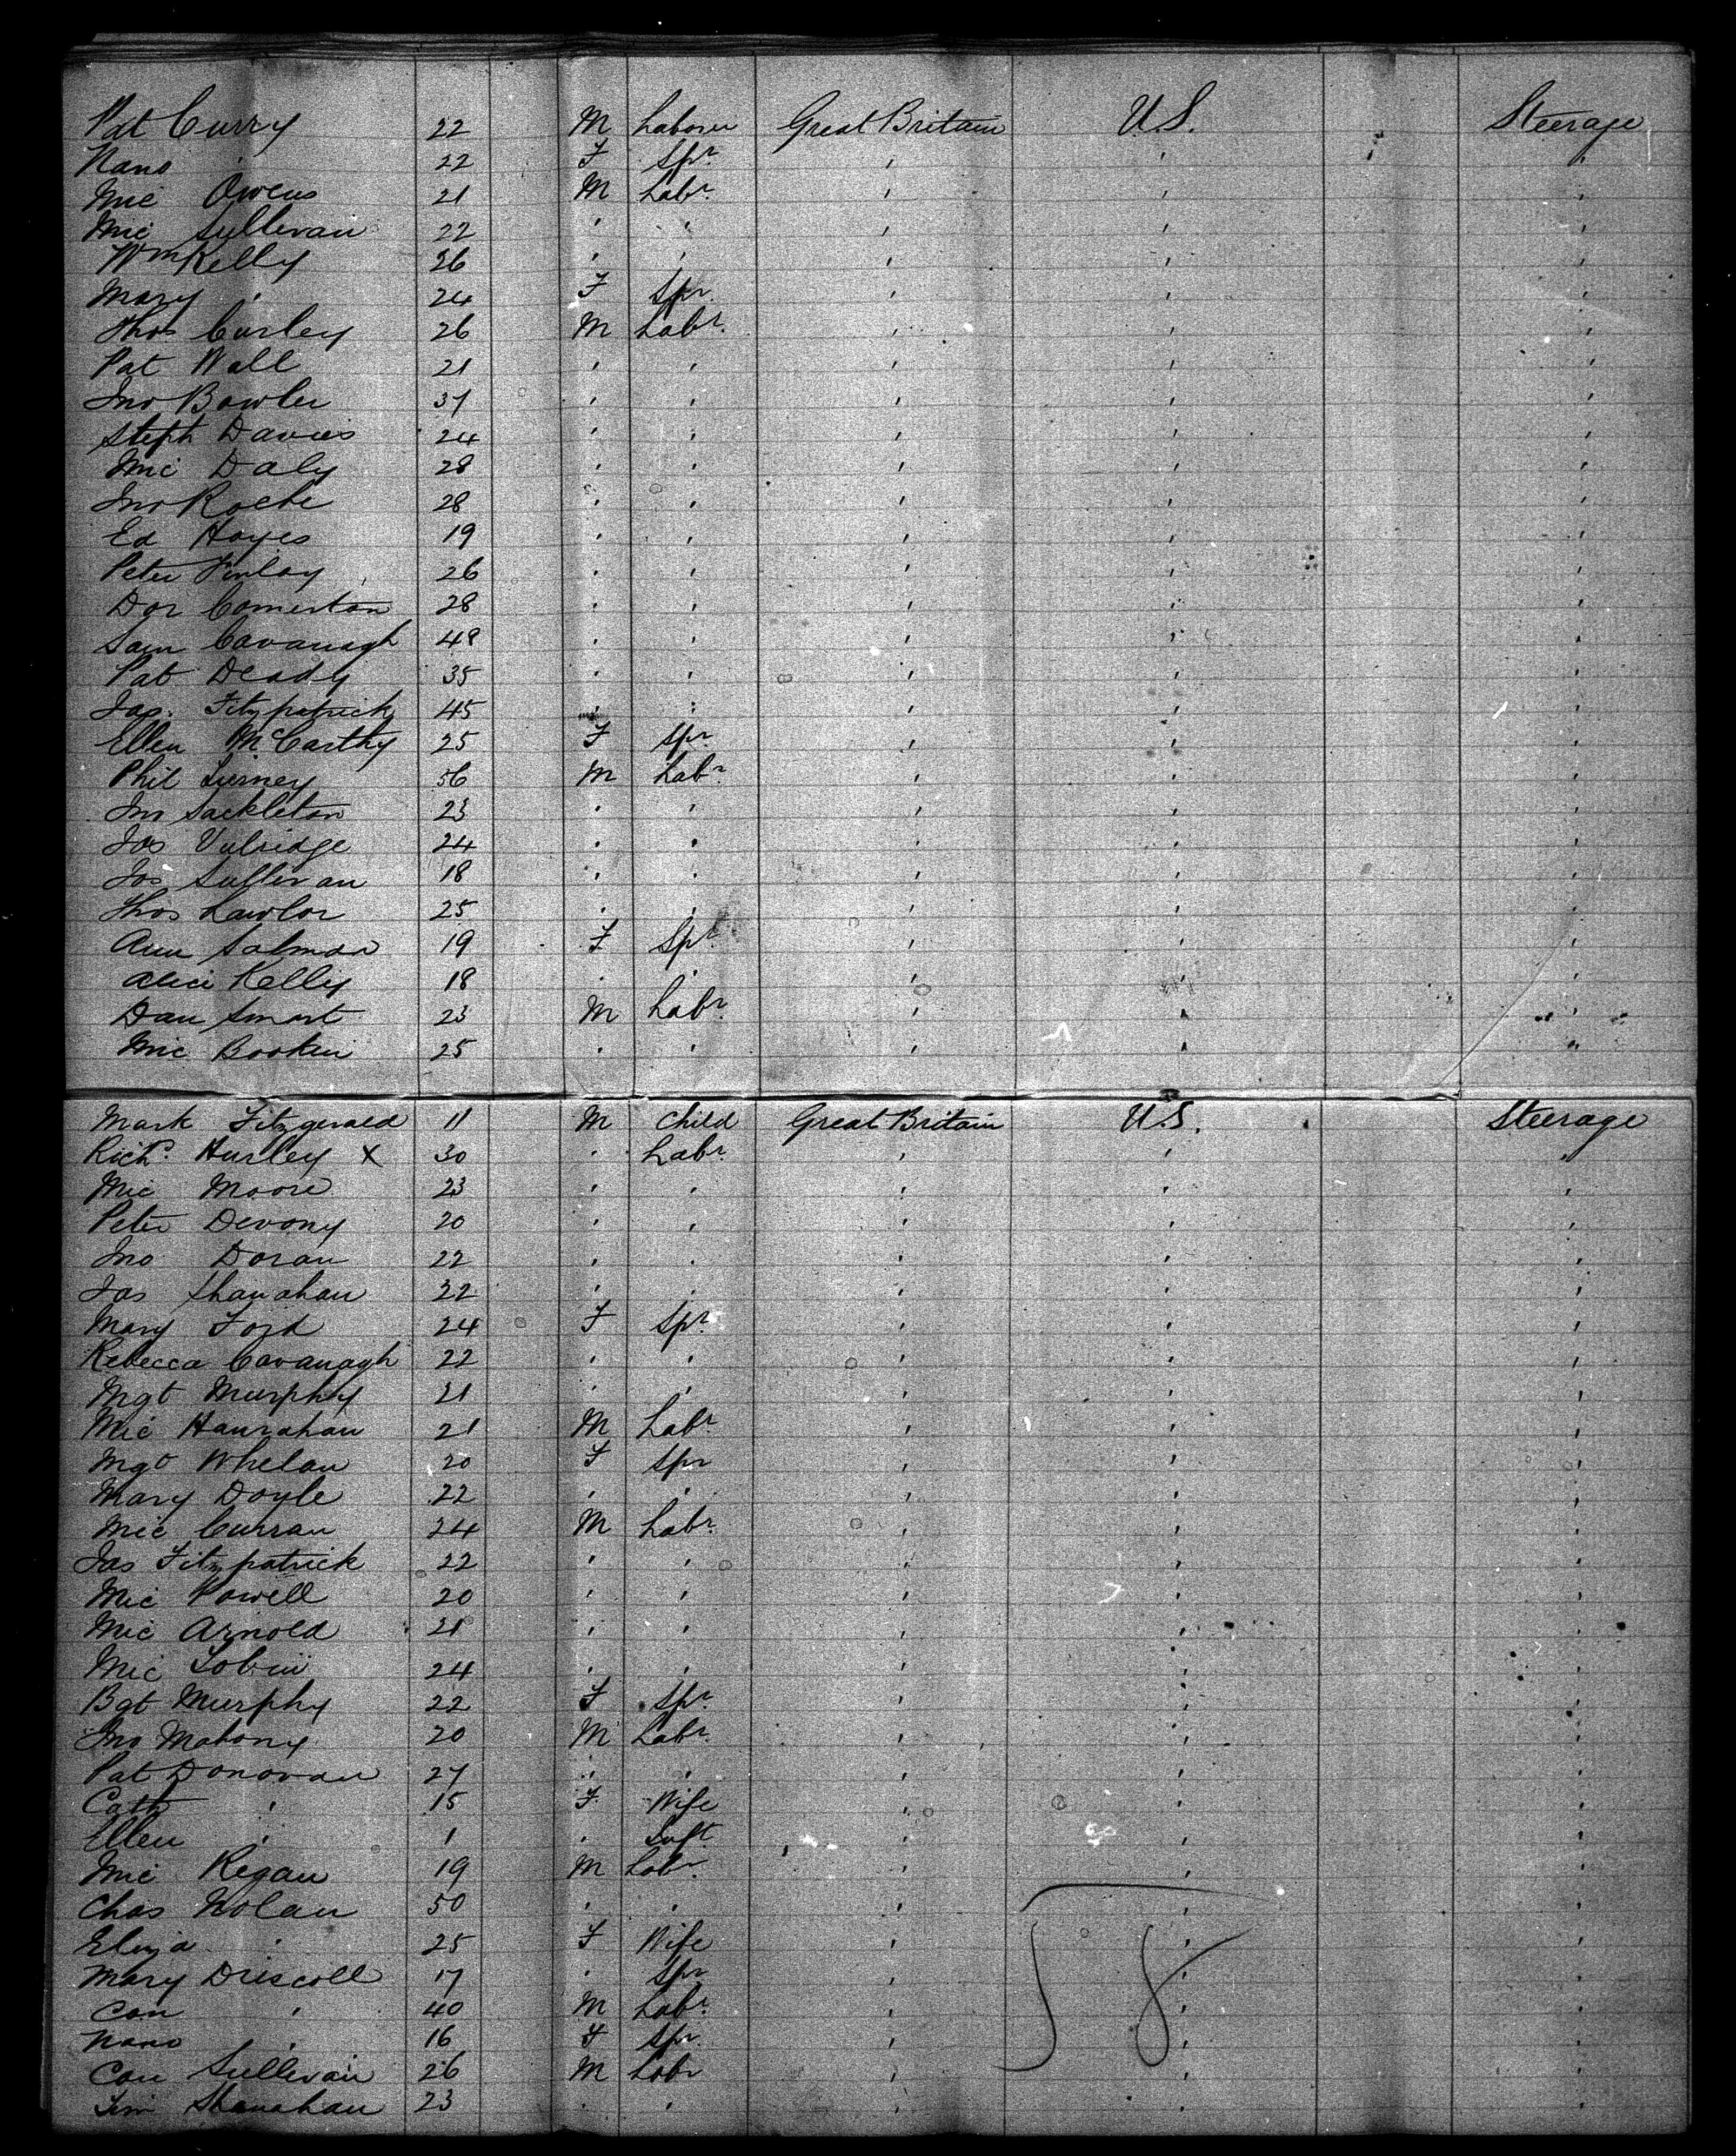 Pat Curry 22 M Laborer Great Britain U.S. Steerage
Nano " 22 F Spr " " "
Mic Owens 21 M Labr " " "
Mic Sullivan 22 " " " " "
Wm Kelly 26 " " " " "
Mary " 24 F Spr " " "
Thos Curley 26 M Labr " " "
Pat Wall 21 " " " " "
Jno Bowler 37 " " " " "
Steph Davies 24 " " " " "
Mic Daly 28 " " " " "
Jno Roche 28 " " " " "
Ed Hayes 19 " " " " "
Peter Finlay 26 " " " " "
Dor Comerton 28 " " " " "
Sam Cavanagh 48 " " " " "
Pat Deady 35 " " " " "
Jas. Fitzpatrick 45 " " " " "
Ellen McCarthy 25 F Spr " " "
Phil 56 M Labr " " "
Jno Sackleton 23 " " " " "
Jas 24 " " " " "
Jos Sullivan 18 " " " " "
Thos Lawlor 25 " " " " "
Ann Salmon 19 F Spr " " "
Alice Kelly 18 " " " " "
Dan Smart 23 M Labr " " "
Mic 25 " " " " "
Mark Fitzgerald 11 M Child Great Britain U.S. Steerage
Richd Hurley X 30 " Labr " " "
Mic Moore 23 " " " " "
Peter Devony 20 " " " " "
Jno Doran 22 " " " " "
Jas Shanahan 22 " " " " "
Mary Ford 24 F Spr " " "
Rebecca Cavanagh 22 " " " " "
Mgt Murphy 21 " " " " "
Mic Hanrahan 21 M Labr " " "
Mgt Whelan 20 F Spr " " "
Mary Doyle 22 " " " " "
Mic Curran 24 M Labr " " "
Jas Fitzpatrick 22 " " " " "
Mic Powell 20 " " " " "
Mic Arnold 21 " " " " "
Mic Tobin 24 " " " " "
Bgt Murphy 22 F Spr " " "
Jno Mahony 20 M Labr " " "
Pat Donovan 27 " " " " "
Cath " 15 F Wife " " "
Ellen " 1 " Inft " " "
Mic Regan 19 M Labr " " "
Chas Nolan 50 " " " " "
Eliza " 25 F Wife " " "
Mary Driscoll 17 " Spr " " "
Con " 40 M Labr " " "
Nano " 16 F Spr " " "
Con Sullivan 26 M Labr " " "
Tim Shanahan 23 " " " " "
58